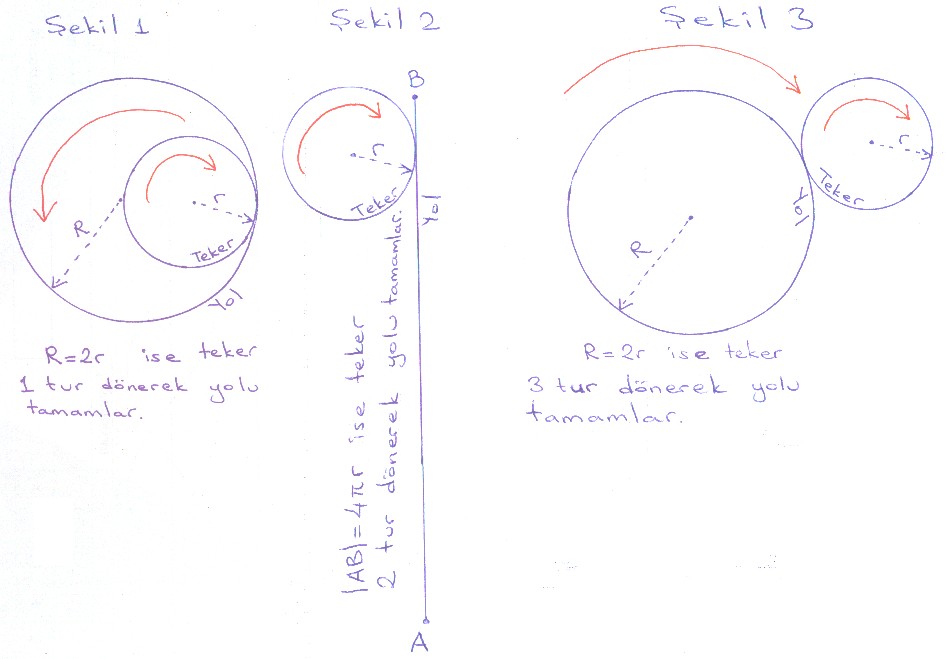 Şekil 1
R
r
Teker
Yol
R=2r ise teker
1 tur dönerek yolu
tamamlar.
Şekil 2
B
r
Teker
Yol
|AB|=4πr ise teker
2 tur dönerek yolu tamamlar.
A
Şekil 3
R
r
Teker
Yol
R=2r ise teker
3 tur dönerek yolu
tamamlar.